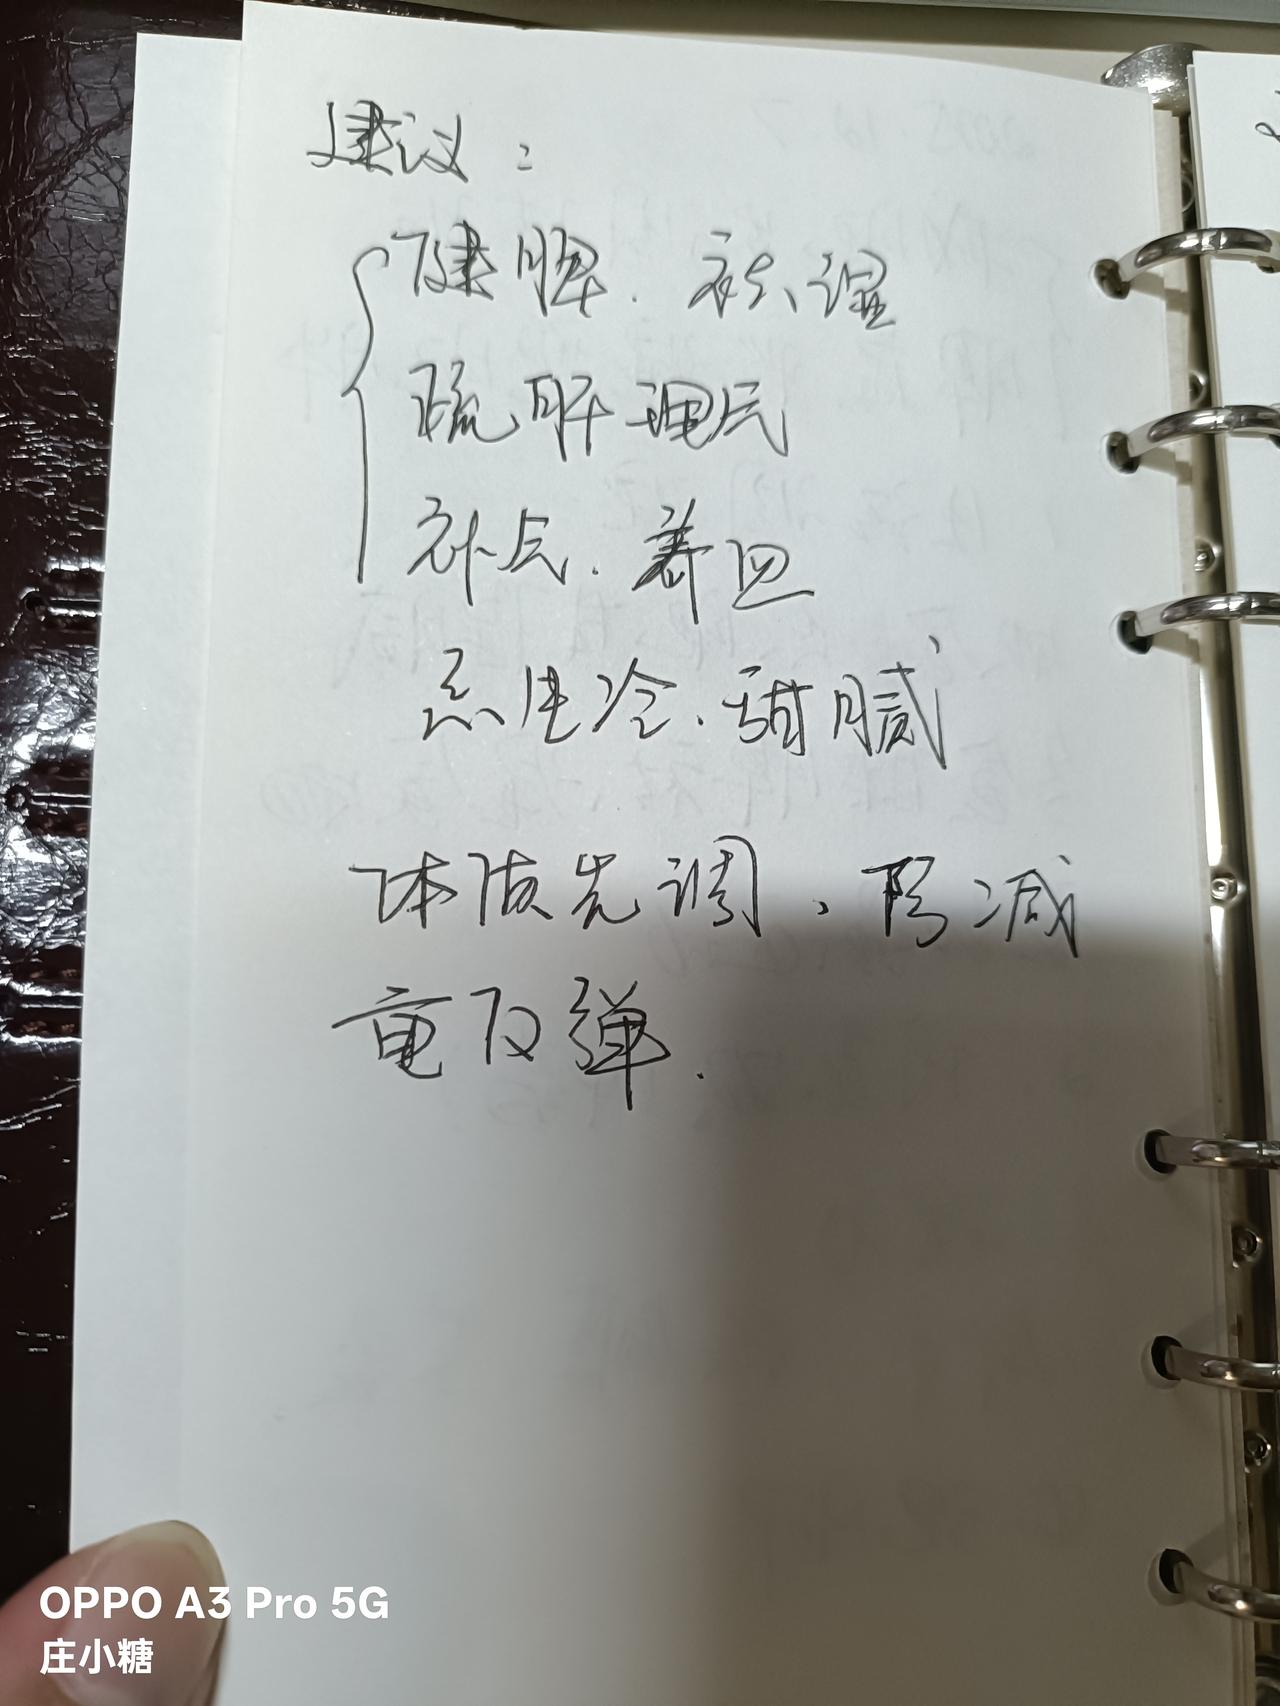 建议：
健脾．祛湿
疏肝理气
补气．养血
忌生冷．甜腻
体质先调、防减
重反弹．
OPPO A3 Pro 5G
庄小糖